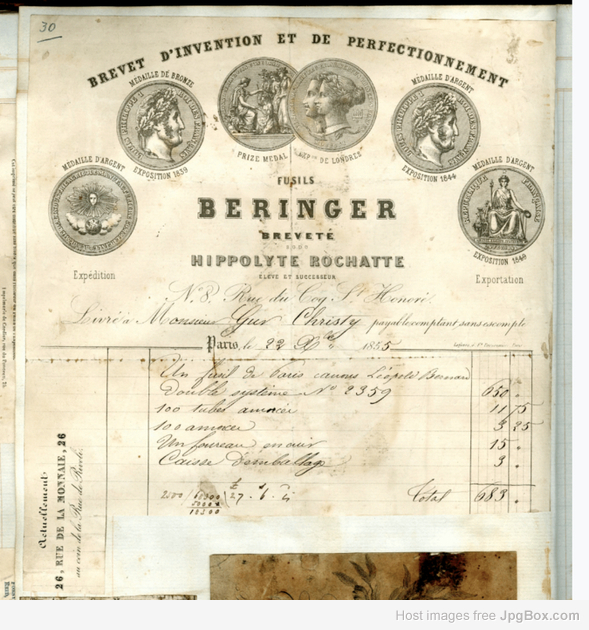 30
BREVET D'INVENTION ET DE PERFECTIONNEMENT
MÉDAILLE DE BRONZE
EXPOSITION 1839
PRIZE MEDAL
DE LONDRES
MÉDAILLE D'ARGENT
EXPOSITION 1844
MÉDAILLE D'ARGENT
Expédition
MÉDAILLE D'ARGENT
RÉPUBLIQUE FRANÇAISE
EXPOSITION 1849
Exportation
FUSILS
BERINGER
BREVETÉ
HIPPOLYTE ROCHATTE
ÉLÈVE ET SUCCESSEUR
N. 8, Rue du Coq St Honoré.
Livré à Monsieur Christy payable comptant sans escompte
Paris, le 22 Xbre 1855
Un fusil de Paris canons Léopold Bernard
Double système No 2359 650 .
100 tubes amorcés 11 75
100 3 25
Un fourreau en cuir 15 .
Caisse d'emballage 3 .
Total 683 .
Actuellement
26, RUE DE LA MONNAIE, 26
au coin de la Rue de Rivoli.
Host images free JpgBox.com